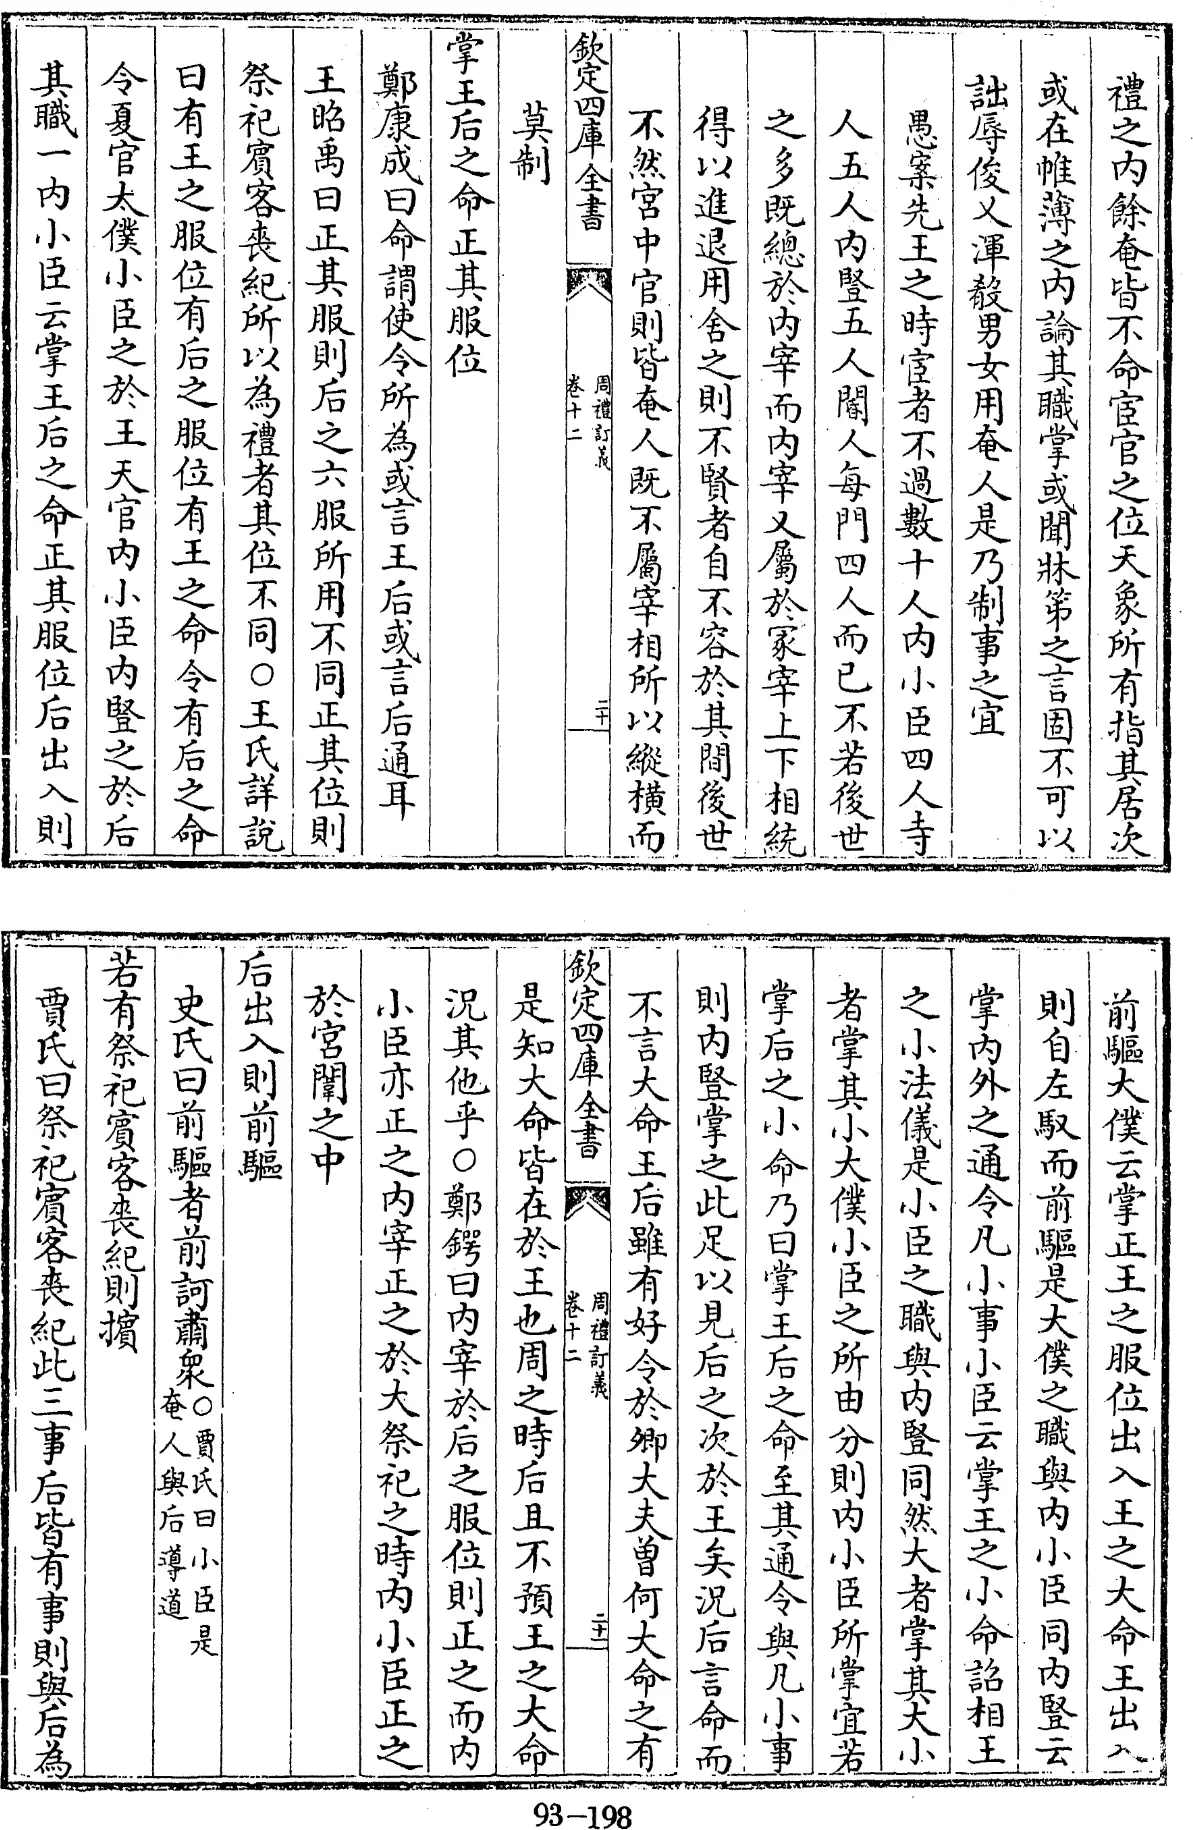 禮之内餘奄皆不命宦官之位天象所有指其居次
或在帷薄之内論其職掌或聞牀笫之言固不可以
詘辱俊乂渾殽男女用奄人是乃制事之宜
愚案先王之時宦者不過數十人内小臣四人寺
人五人内豎五人閽人每門四人而已不若後世
之多既總於内宰而内宰又屬於冢宰上下相統
得以進退用舍之則不賢者自不容於其間後世
不然宮中官則皆奄人既不屬宰相所以縱橫而
欽定四庫全書
周禮訂義
卷十二
二十
莫制
掌王后之命正其服位
鄭康成曰命謂使令所為或言王后或言后通耳
王昭禹曰正其服則后之六服所用不同正其位則
祭祀賓客喪紀所以為禮者其位不同○王氏詳說
曰有王之服位有后之服位有王之命令有后之命
令夏官太僕小臣之於王天官内小臣内豎之於后
其職一内小臣云掌王后之命正其服位后出入則
前驅大僕云掌正王之服位出入王之大命王出入
則自左馭而前驅是大僕之職與内小臣同内豎云
掌内外之通令凡小事小臣云掌王之小命詔相王
之小法儀是小臣之職與内豎同然大者掌其大小
者掌其小大僕小臣之所由分則内小臣所掌宜若
掌后之小命乃曰掌王后之命至其通令與凡小事
則内豎掌之此足以見后之次於王矣況后言命而
不言大命王后雖有好令於卿大夫曾何大命之有
欽定四庫全書
周禮訂義
卷十二
二十一
是知大命皆在於王也周之時后且不預王之大命
況其他乎○鄭鍔曰内宰於后之服位則正之而内
小臣亦正之内宰正之於大祭祀之時内小臣正之
於宮闈之中
后出入則前驅
史氏曰前驅者前訶肅衆○賈氏曰小臣是
奄人與后導道
若有祭祀賓客喪紀則擯
賈氏曰祭祀賓客喪紀此三事后皆有事則與后為
93-198